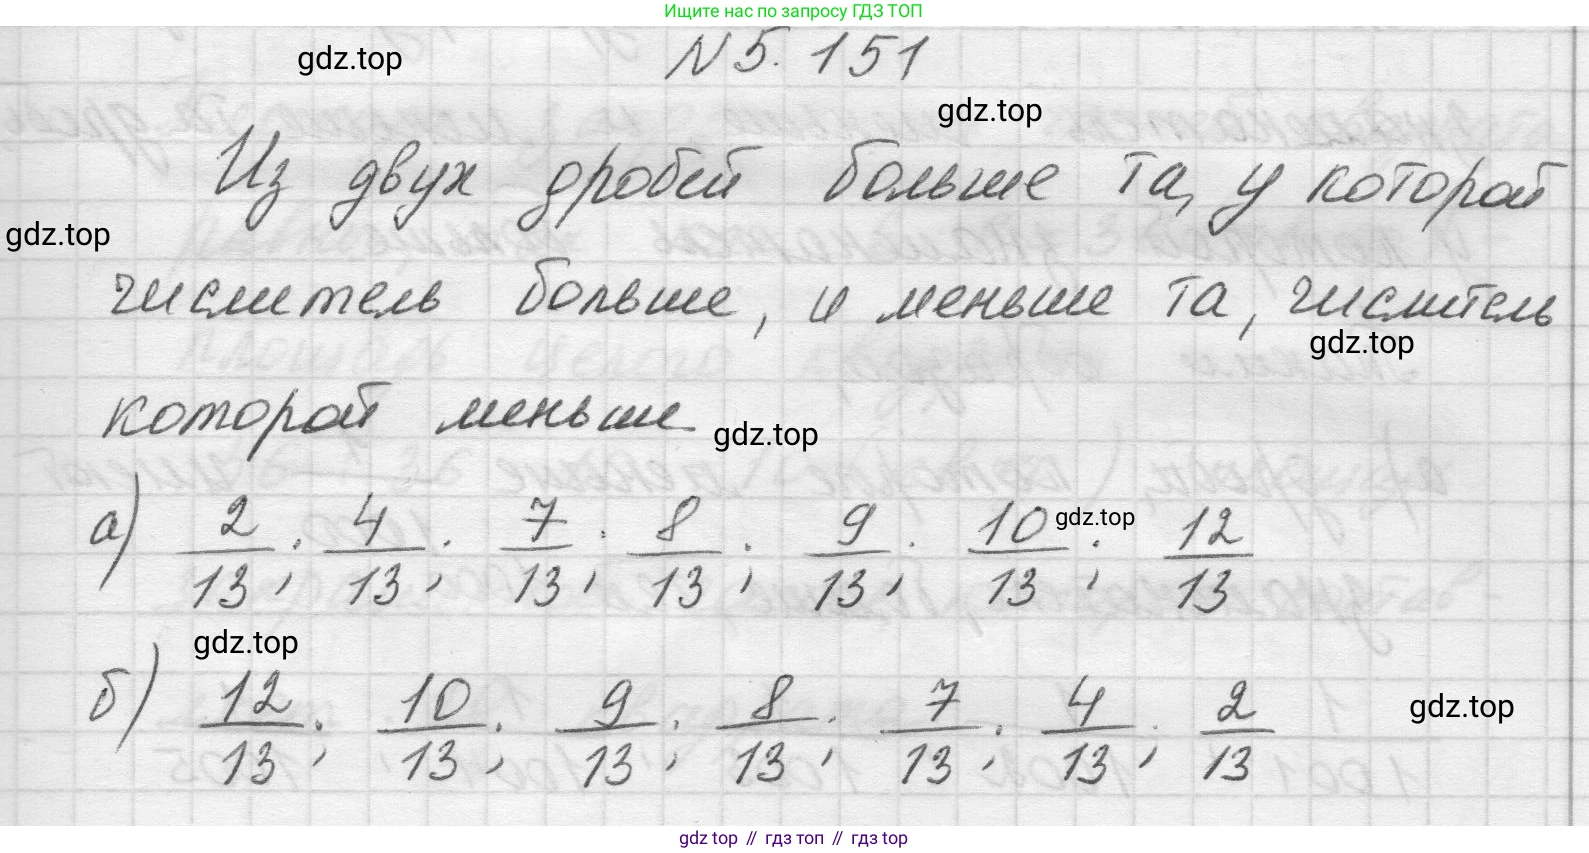 Ищите нас по запросу ГДЗ ТОП
N 5. 151
gdz.top
gdz.top
Из двух дробей больше та, у которой
gdz.top
числитель больше, и меньше та, числитель
gdz.top
которой меньше
gdz.top
а) 2/13; 4/13; 7/13; 8/13; 9/13; 10/13; 12/13
gdz.top
gdz.top
б) 12/13; 10/13; 9/13; 8/13; 7/13; 4/13; 2/13
gdz.top
gdz top // гдз топ // гдз top